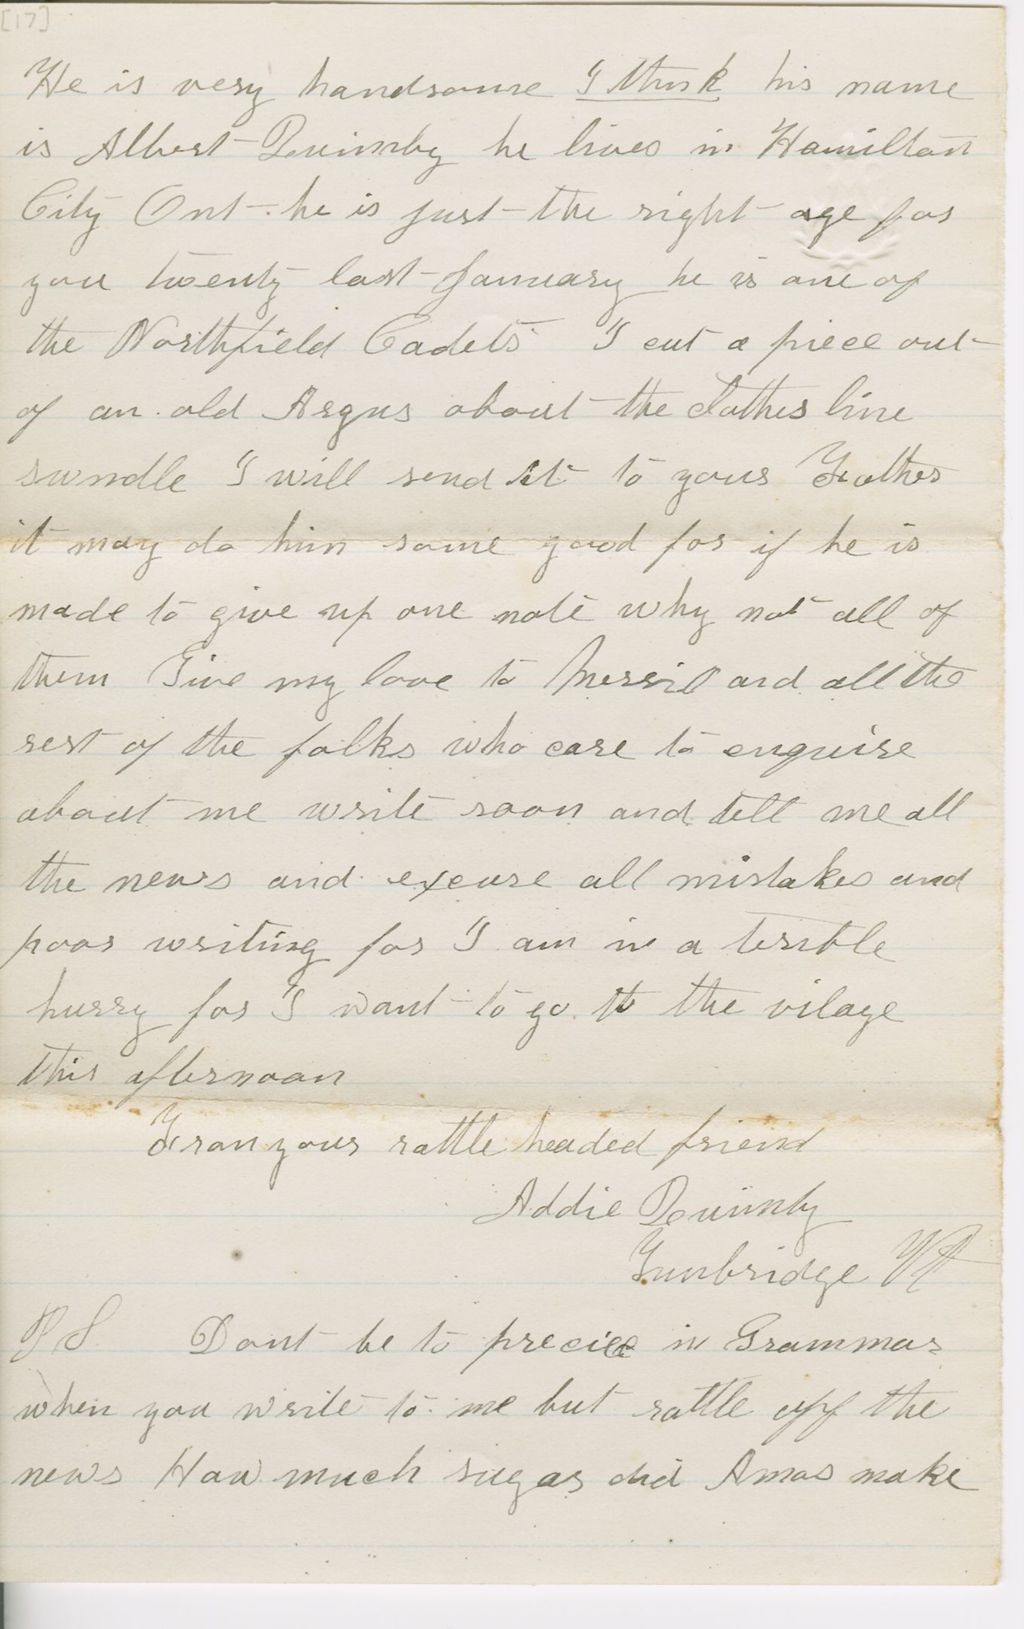 [17]
He is very handsome I think his name
is Albert Quimby he lives in Hamilton
City Ont. he is just the right age for
you twenty last January he is one of
the Northfield Cadets I cut a piece out
of an old Argus about the clothes line
swindle I will send it to your Father
it may do him some good for if he is
made to give up one note why not all of
them Give my love to Merril and all the
rest of the folks who care to enquire
about me write soon and tell me all
the news and excuse all mistakes and
poor writing for I am in a terible
hurry for I want to go to the vilage
this afternoon
From your rattle headed friend
Addie Quimby
Tunbridge Vt
P S. Dont be to precice in Grammar
when you write to me but rattle off the
news How much sugar did Amos make